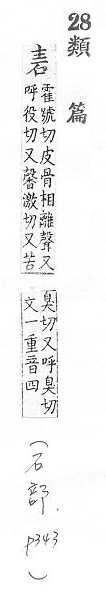 28類篇
砉
霍虢切皮骨相離聲又
呼役切又馨激切又苦
臭切又呼臭切
文一重音四
(石部. p343)